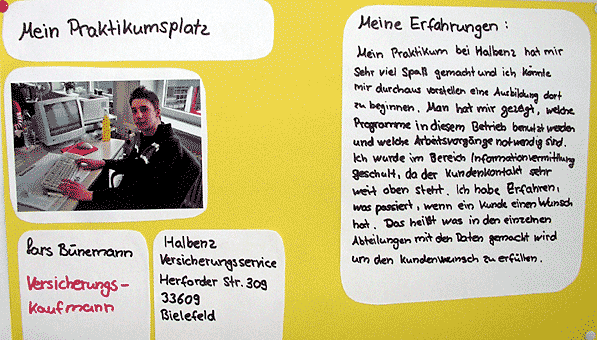 Mein Praktikumsplatz
Lars Bünemann
Versicherungs-
kaufmann
Halbenz
Versicherungsservice
Herforder Str. 309
33609
Bielefeld
Meine Erfahrungen :
Mein Praktikum bei Halbenz hat mir
sehr viel Spaß gemacht und ich könnte
mir durchaus vorstellen eine Ausbildung dort
zu beginnen. Man hat mir gezeigt, welche
Programme in diesem Betrieb benutzt werden
und welche Arbeitsvorgänge notwendig sind.
Ich wurde im Bereich Informationvermittlung
geschult, da der Kundenkontakt sehr
weit oben steht. Ich habe Erfahren,
was passiert, wenn ein Kunde einen Wunsch
hat. Das heißt was in den einzelnen
Abteilungen mit den Daten gemacht wird
um den Kundenwunsch zu erfüllen.